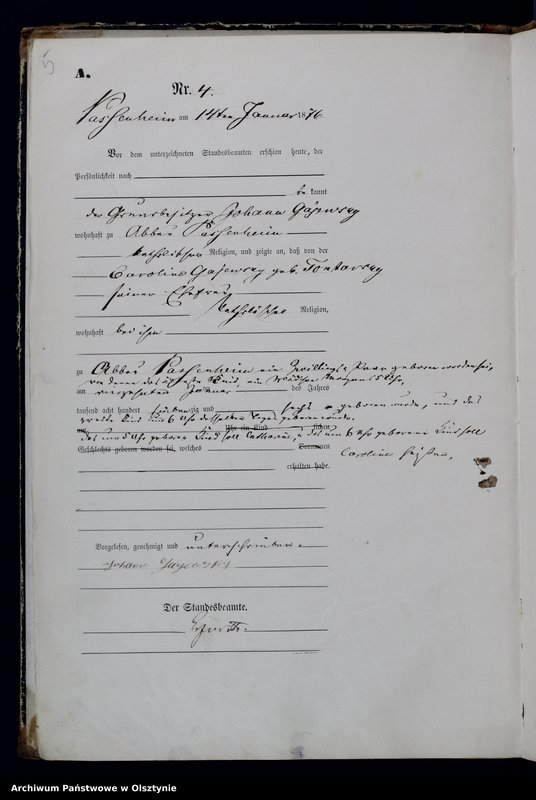 5
A.
Nr. 4.
Passenheim am 14ten Januar 1876
Vor dem unterzeichneten Standesbeamten erschien heute, der
Persönlichkeit nach
be kannt
der Grundbesitzer Johann Gajewsky
wohnhaft zu Abbau Passenheim
katholischer Religion, und zeigte an, daß von der
Caroline Gajewsky geb.
seiner Ehefrau
katholischer Religion,
wohnhaft bei ihm
zu Abbau Passenheim ein Zwillings Paar geboren worden sei,
von denen das erste Kind, ein Mädchen Morgens 5 Uhr,
am vierzehnten Januar des Jahres
tausend acht hundert siebenzig und sechs geboren wurde, und das
zweite Kind um 6 Uhr desselben Tages geboren wurde.
Uhr ein Kind lichen
das um 5 Uhr geborene Kind soll Catharine, das um 6 Uhr geborene Kind soll
Geschlechts geboren worden sei, welches Vornamen
Caroline heißen.
erhalten habe.
Vorgelesen, genehmigt und unterschrieben
Johann
Der Standesbeamte.
Archiwum Państwowe w Olsztynie